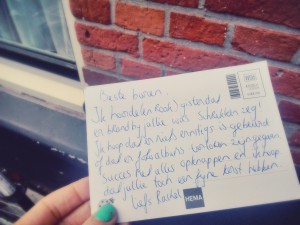 Beste buren,
Ik hoorde (en rook) gisteren
er brand bij jullie was. Schrikken zeg!
Ik hoop dat er niets ernstigs is gebeurd
of dat er fotoalbums verloren zijn gegaan
Succes met alles opknappen en ik hoop
dat jullie toch een fijne kerst hebben.
Liefs Rachel
HEMA